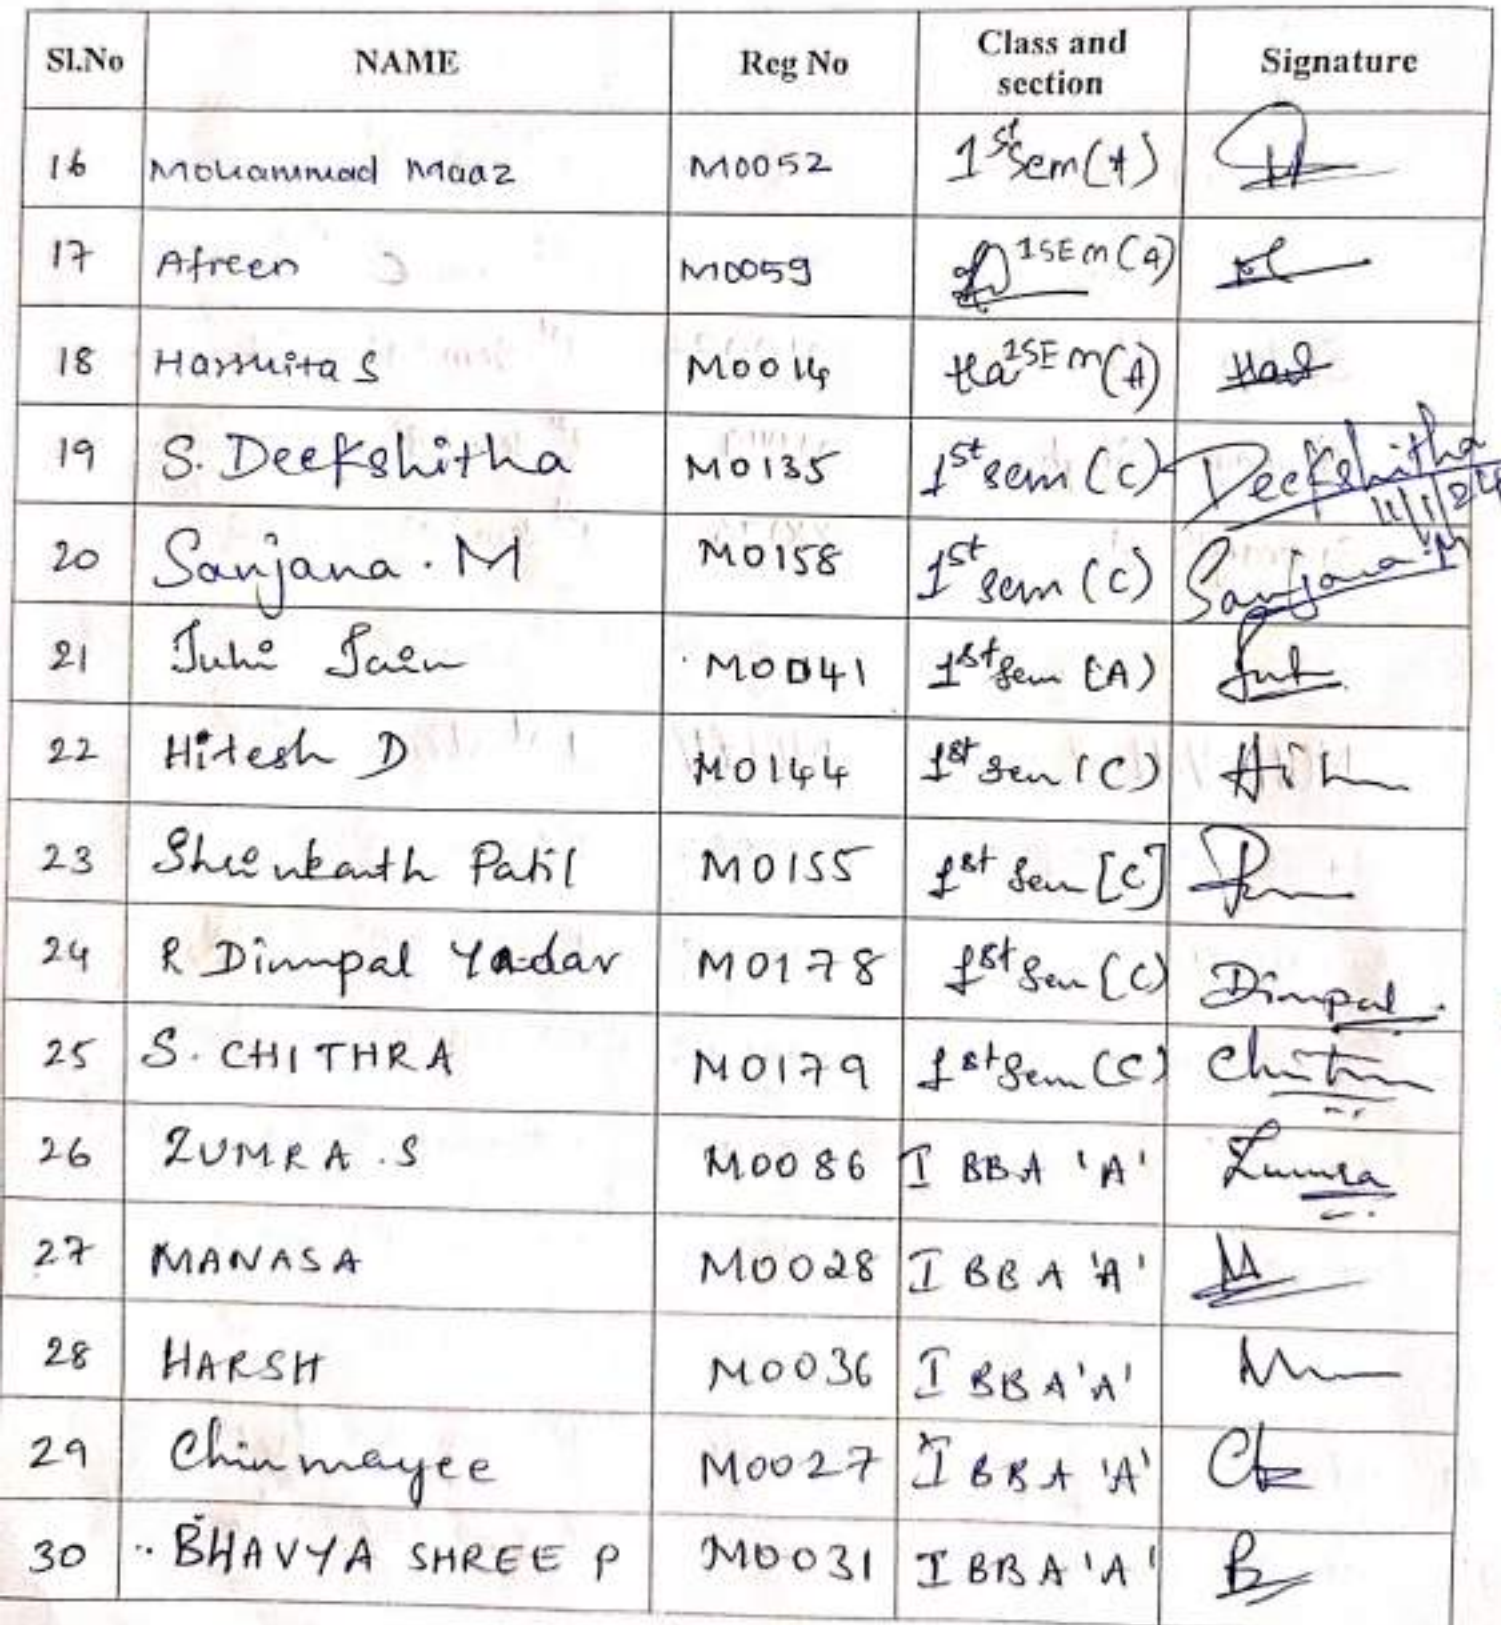 Sl.No NAME Reg No Class and section Signature
16 Mohammad Maaz M0052 1st Sem (A)
17 Afreen M0059 1SEM (A)
18 M0014 Ha 1SEM (A) Has
19 S. Deekshitha M0135 1st sem (C) Deekshitha 11/1/24
20 Sanjana . M M0158 1st sem (C) Sanjana M
21 Juhi Jain M0041 1st Sem (A)
22 Hitesh D M0144 1st sem (C)
23 Patil M0155 1st Sem [C]
24 R Dimpal Yadav M0178 1st Sem (C) Dimpal
25 S. CHITHRA M0179 1st Sem (C)
26 ZUMRA . S M0086 I BBA 'A' Zumra
27 MANASA M0028 I BBA 'A'
28 HARSH M0036 I BBA 'A'
29 Chinmayee M0027 I BBA 'A'
30 BHAVYA SHREE P M0031 I BBA 'A' B